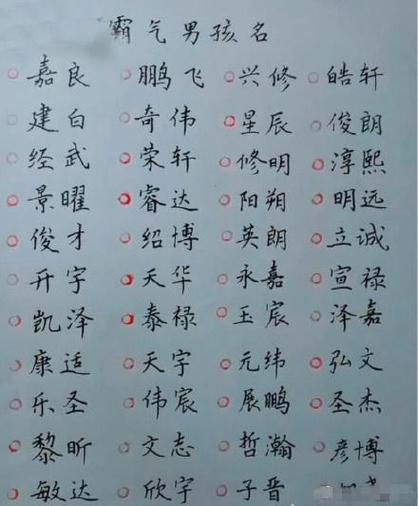 霸气男孩名
嘉良 鹏飞 兴修 皓轩
建白 奇伟 星辰 俊朗
经武 荣轩 修明 淳熙
景曜 睿达 阳朔 明远
俊才 绍博 英朗 立诚
开宇 天华 永嘉 宣禄
凯泽 泰禄 玉宸 泽嘉
康适 天宇 元纬 弘文
乐圣 伟宸 展鹏 圣杰
黎昕 文志 哲瀚 彦博
敏达 欣宇 子晋